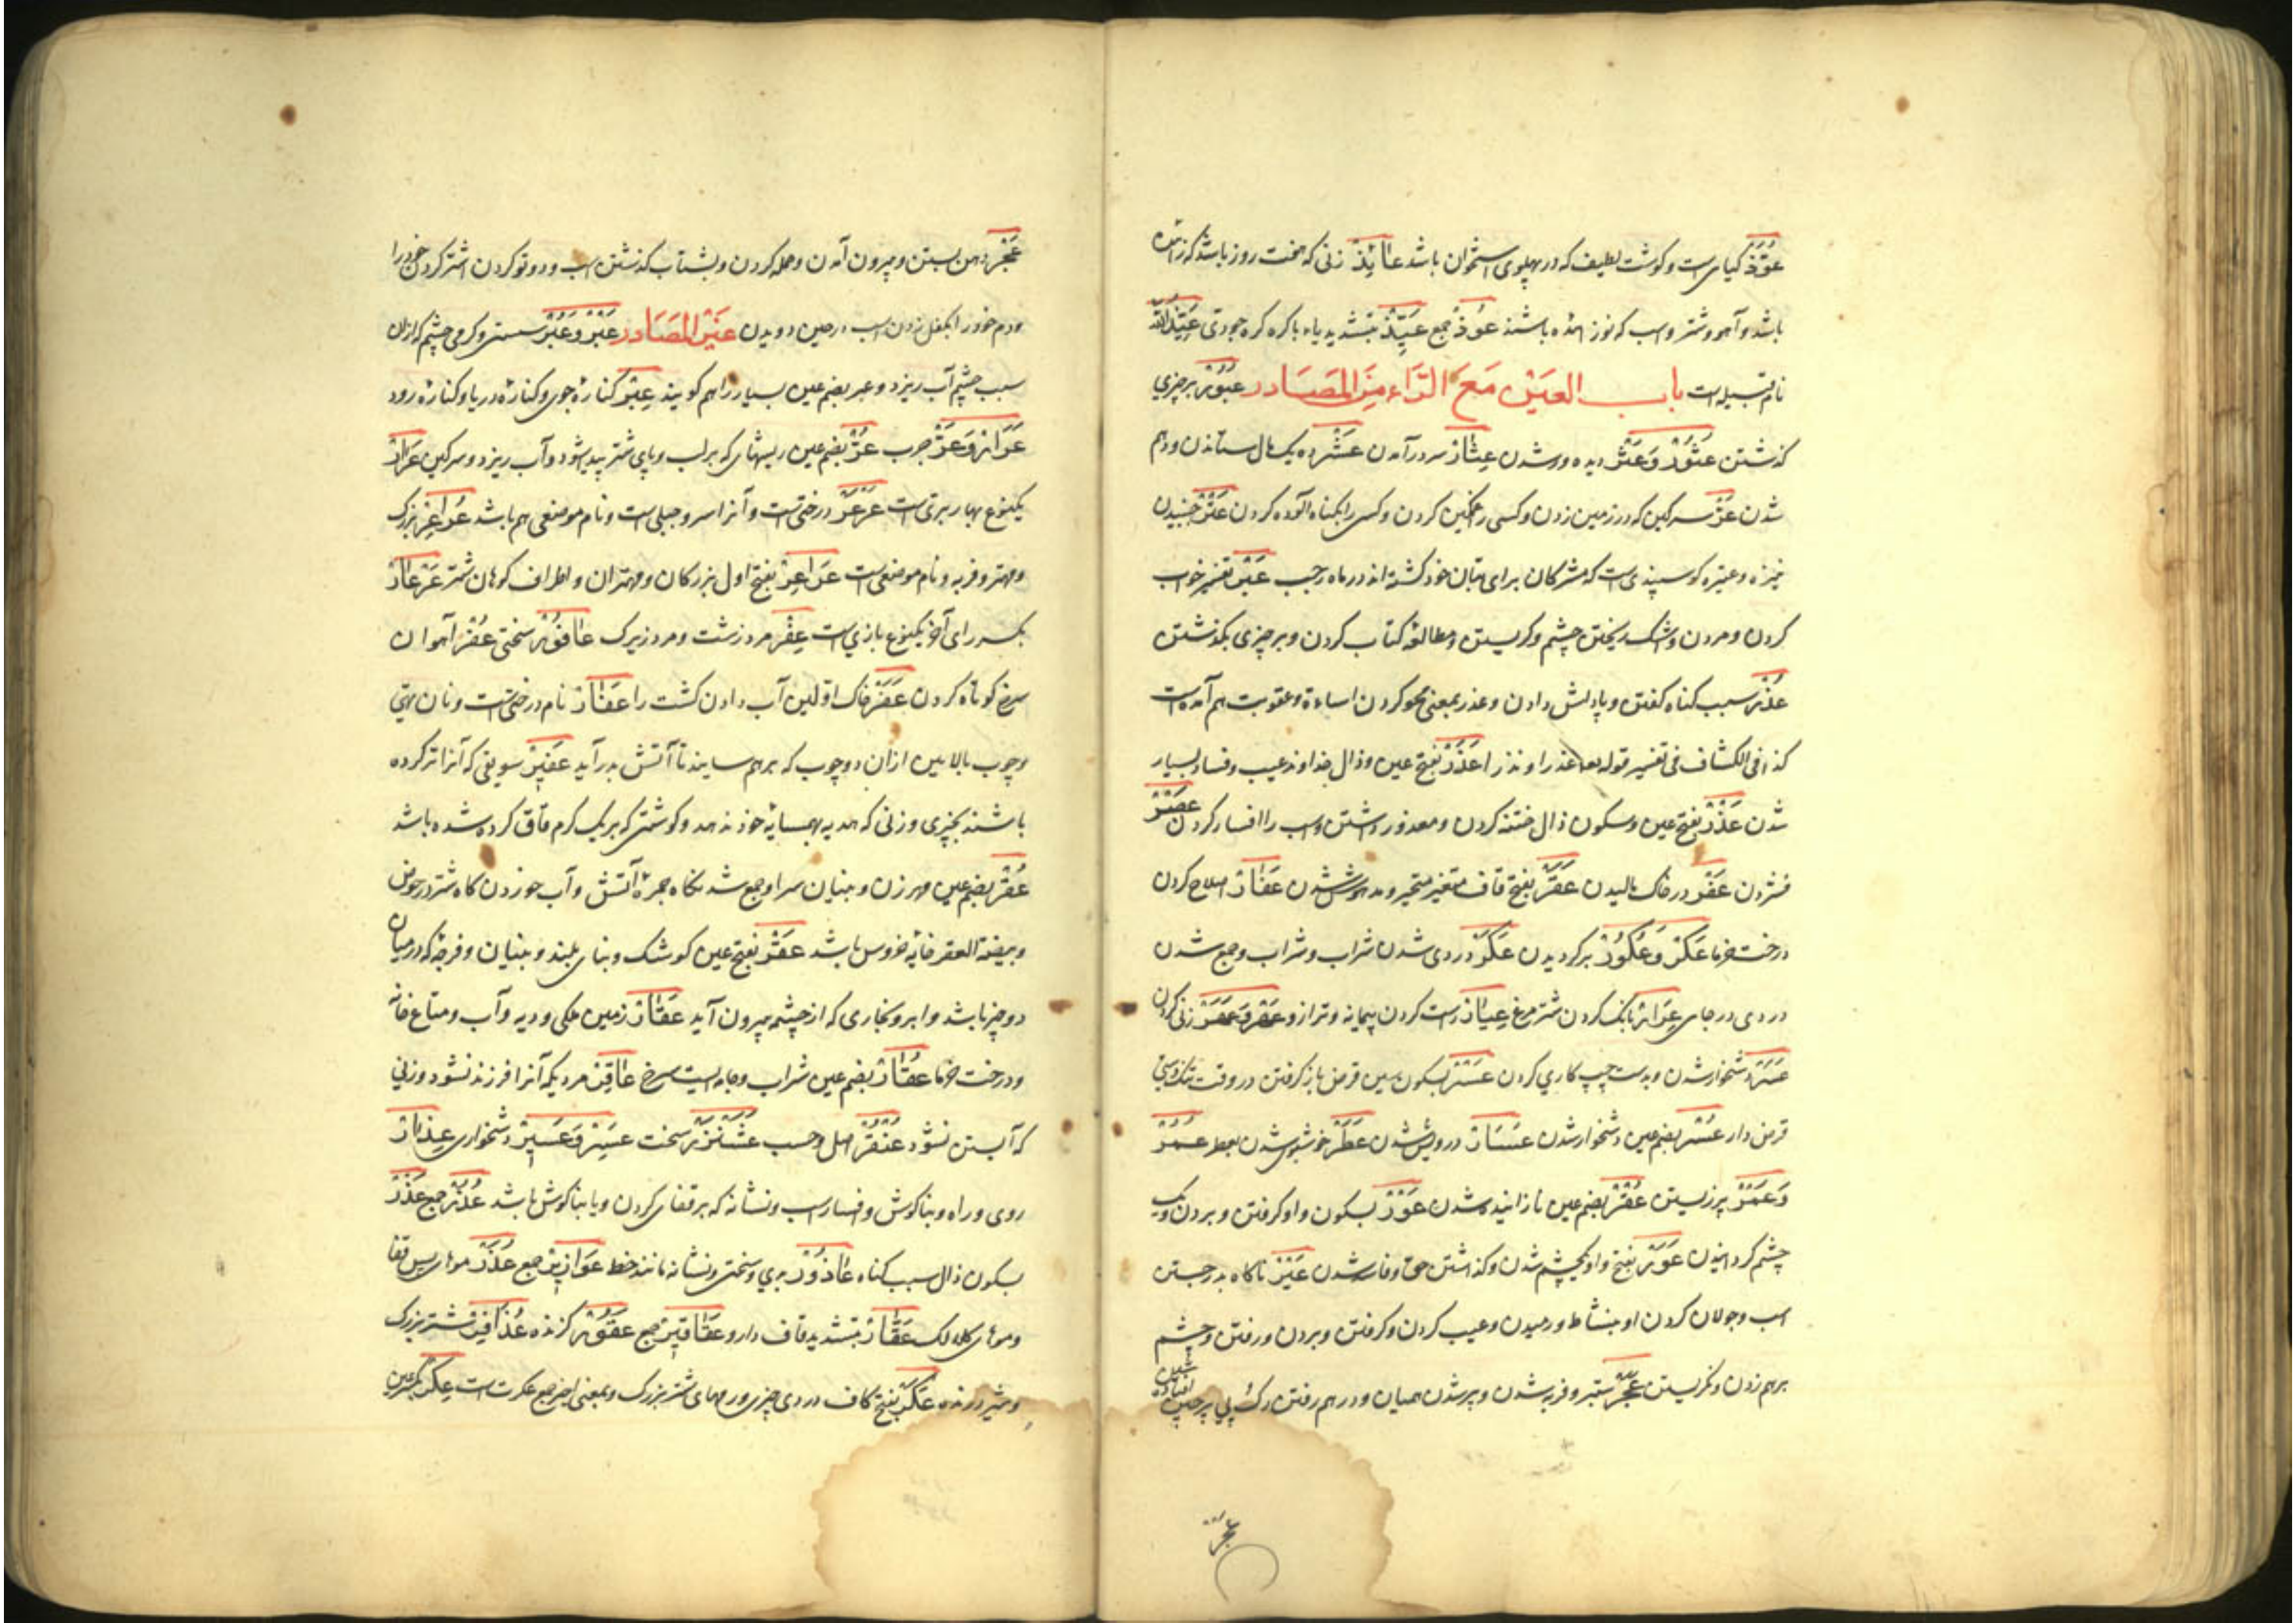 عُوَّذ کیاهی است و کوشت لطیف که در پهلوی استخوان باشد عَائِذ زنی که هفت روز باشد که زاده
باشد و آهو و شتر و اسب که نوز آمده باشند عُوذ جمع عَیِّذ بتشدید یاء با کره عَیِّذُاللّه
نام قبیله است باب العین مع الراء من المصادر عُبُور بر چیزی
کذشتن عُثُور وَ عَثْر دیده ور شدن عِثَار بسر در آمدن عَشْر ده یک مال ستاندن و دهم
شدن عَرّ سرکین که در زمین زدن و کسی را غمکین کردن و کسی را بکناه آلوده کردن عَتْر جنبیدن
نیزه و عتیره کوسپندی است که مشرکان برای بتان خود کشته اند در ماه رجب عَبْر تفسیر خواب
کردن و مردن و اشک ریختن چشم و کریستن و مطالعه کتاب کردن و بر چیزی بکذشتن
عُذْر سبب کناه کفتن و پاداش دادن و عذر بمعنی محو کردن اساءة و عقوبت هم آمده است
کذا فی الکشاف فی تفسیر قوله تعا عذرا او نذرا عَذَر بفتح عین و ذال خداوند عیب و فساد بسیار
شدن عَذْر بفتح عین و سکون ذال ختنه کردن و معذور داشتن و اسب را افسار کردن عَصْر
فشردن عَفْر در خاک مالیدن عَقَر بفتح قاف متغیر متحیر و مدهوش شدن عَفَار اصلاح کردن
درخت خرما عَکْر وَ عُکُور بر کردیدن عَکَر دردی شدن شراب و شراب و جمع شدن
دردی در جای عِرَار بانک کردن شتر مرغ عِیَار راست کردن پیمانه و ترازو
عَسَر دشخوار شدن و بدست چپ کاری کردن عَسْر بسکون سین قرض باز کرفتن در وقت تنک دستی
قرض دار عُسْر بضم عین دشخوار شدن عَسَار درویش شدن عَطَر خوشبوی شدن بعطر عُمُر
وَ عَمْر پر زیستن عُقْر بضم عین نا زاینده شدن عَوْر بسکون واو کرفتن و بردن و یک
چشم کردانیدن عَوَر بفتح واو یکچشم شدن و کذاشتن حق و فاسد شدن عَیْر ناکاه بدر جستن
اسب و جولان کردن او بنشاط و رمیدن و عیب کردن و کرفتن و بردن و رفتن و چشم
برهم زدن و نکریستن عَجَر ستبر و فربه شدن و پر شدن همیان و در هم رفتن رک پی
عجر
عَجْر دهن بستن و بیرون آمدن و حمله کردن و بشتاب کذشتن اسب و دو تو کردن اشتر کردن خود را
ودم خود را بکفل زدن اسب در حین دویدن غیر المصادر عَبْر وَ عُبْر سستی و کرمی چشم که از آن
سبب چشم آب ریزد و عبر بضم عین بسیار را هم کویند عِبْر کنارهٔ جوی و کنارهٔ دریا و کنارهٔ رود
عَرّ جرب عُرّ بضم عین ریشهای که بر لب و پای شتر پدید شود و آب ریزد و سرکین عَرَار
یکنوع بهار بری است عَرْعَر درختی است و آنرا سرو جبلی است و نام موضعی هم باشد عُرَاعِر بزرک
و مهتر و فربه و نام موضعی است عَرَاعِر بفتح اول بزرکان و مهتران و اطراف کوهان شتر عَرْعَار
بکسر رای آخر یکنوع بازی است عِفْر مرد زشت و مرد زیرک عَافُور سختی عُفْر آهوان
سرخ کوتاه کردن عَفَر خاک اولین آب دادن کشت را عَفَار نام درختی است و نان تهی
و چوب بالایین از آن دو چوب که برهم سایند تا آتش بدر آید عَفِیر سویقی که آنرا تر کرده
باشند بچیزی و زنی که هدیه بهمسایهٔ خود ندهد و کوشتی که بریک کرم قاق کرده شده باشد
عُقْر بضم عین مهر زن و بنیان سرا و جمع شدنکاه جمرهٔ آتش و آب خوردن کاه شتر در حوض
و بیضة العقر خایهٔ خروس باشد عَقْر بفتح عین کوشک و بنای بلند و بنیان و فرجه که در میان
دو چیز باشد و ابر و بخاری که از چشمه بیرون آید عَقَار زمین ملکی و دیه و آب و متاع خانه
و درخت خرما عُقَار بضم عین شراب و جامه ایست سرخ عَاقِر مردیکه آنرا فرزند نشود و زنی
که آبستن نشود عُنْقُر اصل و حسب عَشَنْزَر سخت عَسِر وَ عَسِیر دشخواری عِذَار
روی و راه و بناکوش و افسار اسب و نشانه که بر قفای کردن و یا بناکوش باشد عُذُر جمع عُذْر
بسکون ذال سبب کناه عَاذُور بدی و سختی و نشانه مانند خط عَوَاذِیر جمع عُذَر موهای پس قفا
و موهای کلالک عَقَّار بتشدید قاف دارو عَقَاقِیر جمع عَقُور کزنده عُذَافِر شتر بزرک
و شیر درنده عَکَر بفتح کاف دردی چیزی و رمهای شتر بزرک و بمعنی اخیر جمع عکرت است عِکْر بکسر عین